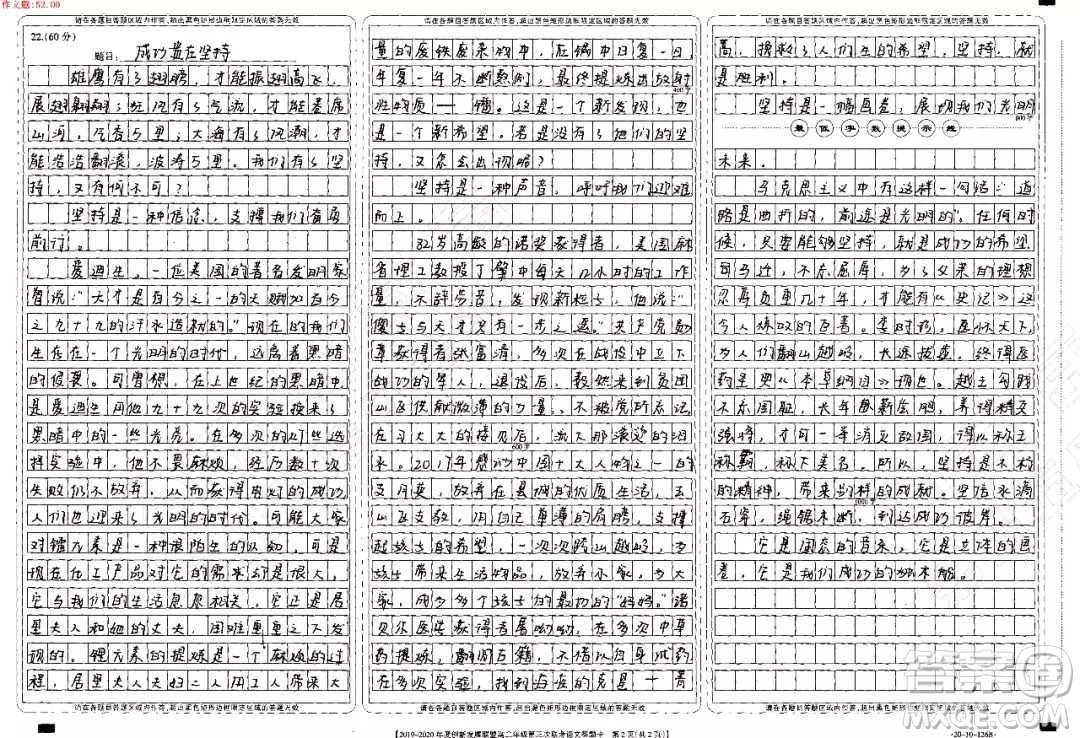 作文题:52.00
请在各题目答题区域内作答,超出黑色矩形边框限定区域的答题无效
22.(60分)
题目: 成功益在坚持
雄鹰有了翅膀,才能振翅高飞,
展翅翱翔;红风有了气流,才能卷席
山河,气吞万里;大海有了风潮,才
能浩浩翻滚,波涛万里。我们有了坚
持,又有何不可?
坚持是一种信念,支撑我们首展
前行。
爱迪生。一位美国的著名发明家
曾说:"天才是百分之一的天赋加百分
之九十九的汗水造就的。"现在的我们
生存在一个光明的时代,远离着黑暗
的侵袭。可曾想,在上世纪的黑暗中
是爱迪生用他九十九次的实验换来了
黑暗中的一丝光亮。在多次的灯丝选
择实验中,他不畏麻烦,经历数十次
失败仍不放弃,从而获得电灯的成功
人们也迎来了光明的时代。可能大家
对镭元素是一种很陌生的认知,可是
现在化工产品对它的需求却很大,
它与我们的生活息息相关,它正是居
里夫人和她的丈夫,困难重重之下发
现的。镭元素的提炼是一个麻烦的过
程,居里夫人夫妇二人用工人带来大
请在各题目答题区域内作答,超出黑色矩形边框限定区域的答题无效
请在各题目答题区域内作答,超出黑色矩形边框限定区域的答题无效
量的废铁废杂物中,在锅中日复一日,
年复一年不断熬制,最终提炼出放射
性物质——镭。这是一个新发现,也
400字
是一个新希望。若是没有了他们的坚
持,又怎会出现呢?
坚持是一种声音,呼吁我们迎难
而上。
82岁高龄的诺奖获得者,美国麻
省理工教授丁肇中每天12小时的工作
量,不辞劳苦,发现新粒子,他说:"
傻子与天才只有一步之遥。"共产党勋
章获得者张富清,多次在战役中立下
战功的军人,退役后,毅然来到贫困
山区供献微薄的力量,不被党所忘记
在习大大的接见后,流下那滚烫的泪
600字
水。2019年感动中国十大人物之一的
支月英,放弃在县城的优质生活,去
山区支教,用自己单薄的肩膀,支撑
起孩子的希望,一次次跨山越岭,为
孩子带来生活物品,放弃小家,为大
家,成为多个孩子的最初的"妈妈。"诺
贝尔医学获得者屠呦呦,在多次中草
药提炼,翻阅古籍,不惜以自身试药
在多次实验,找到海在的克星——青
请在各题目答题区域内作答,超出黑色矩形边框限定区域的答题无效
【2019-2020年度创新发展联盟高二年级第三次联考语文答题卡 第2页(共2页)】
请在各题目答题区域内作答,超出黑色矩形边框限定区域的答题无效
高,拯救了人们生的希望,坚持,就
是胜利。
坚持是一幅画卷,展现我们光明
800字
最低字数提示线
未来。
马克思主义中有这样一句话:"道
路是曲折的,前途是光明的"。在任何时
候,只要能够坚持,就是成功的希望
司马迁,不忘屈辱,为了父亲的理想
忍辱负重几十年,才能有《史记》这
令人练叹的巨著。李时珍,屡怀天下,
为人们翻山越岭,长途拔涉。终得医
药圣典《本草纲目》现世。越王勾践
不忘国耻,长年卧薪尝胆,养得精兵
强将,才可一举消灭敌国,得以称王
称霸,称下美名。所以,坚持是不朽
的精神,带来别样的成就。坚信水滴
1000字
石穿,绳锯木断,到达成功彼岸。
它是固态的音乐,它是立体的画
卷,它是我们成功的独木船。
请在各题目答题区域内作答,超出黑色矩形边框限定区域的答题无效
·20-10-126B·
答案圈